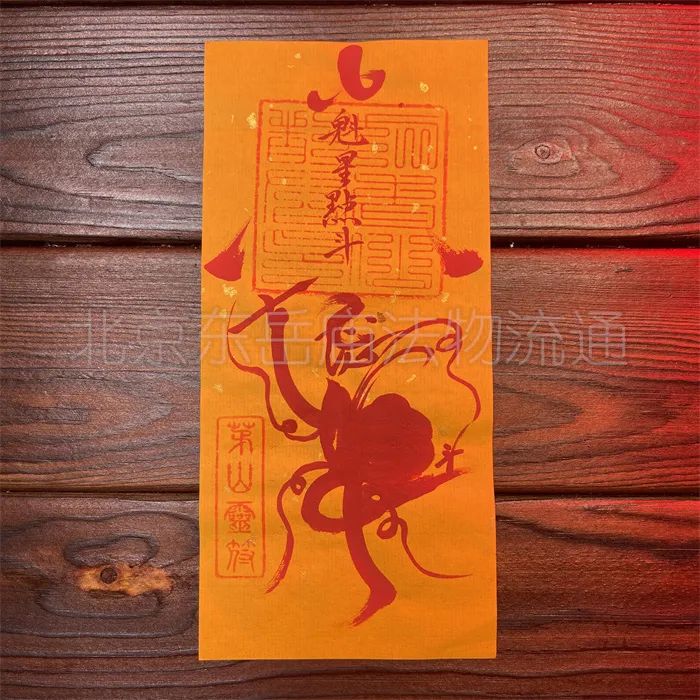 魁星點斗
北京东岳庙法物流通
斗
茅山靈符